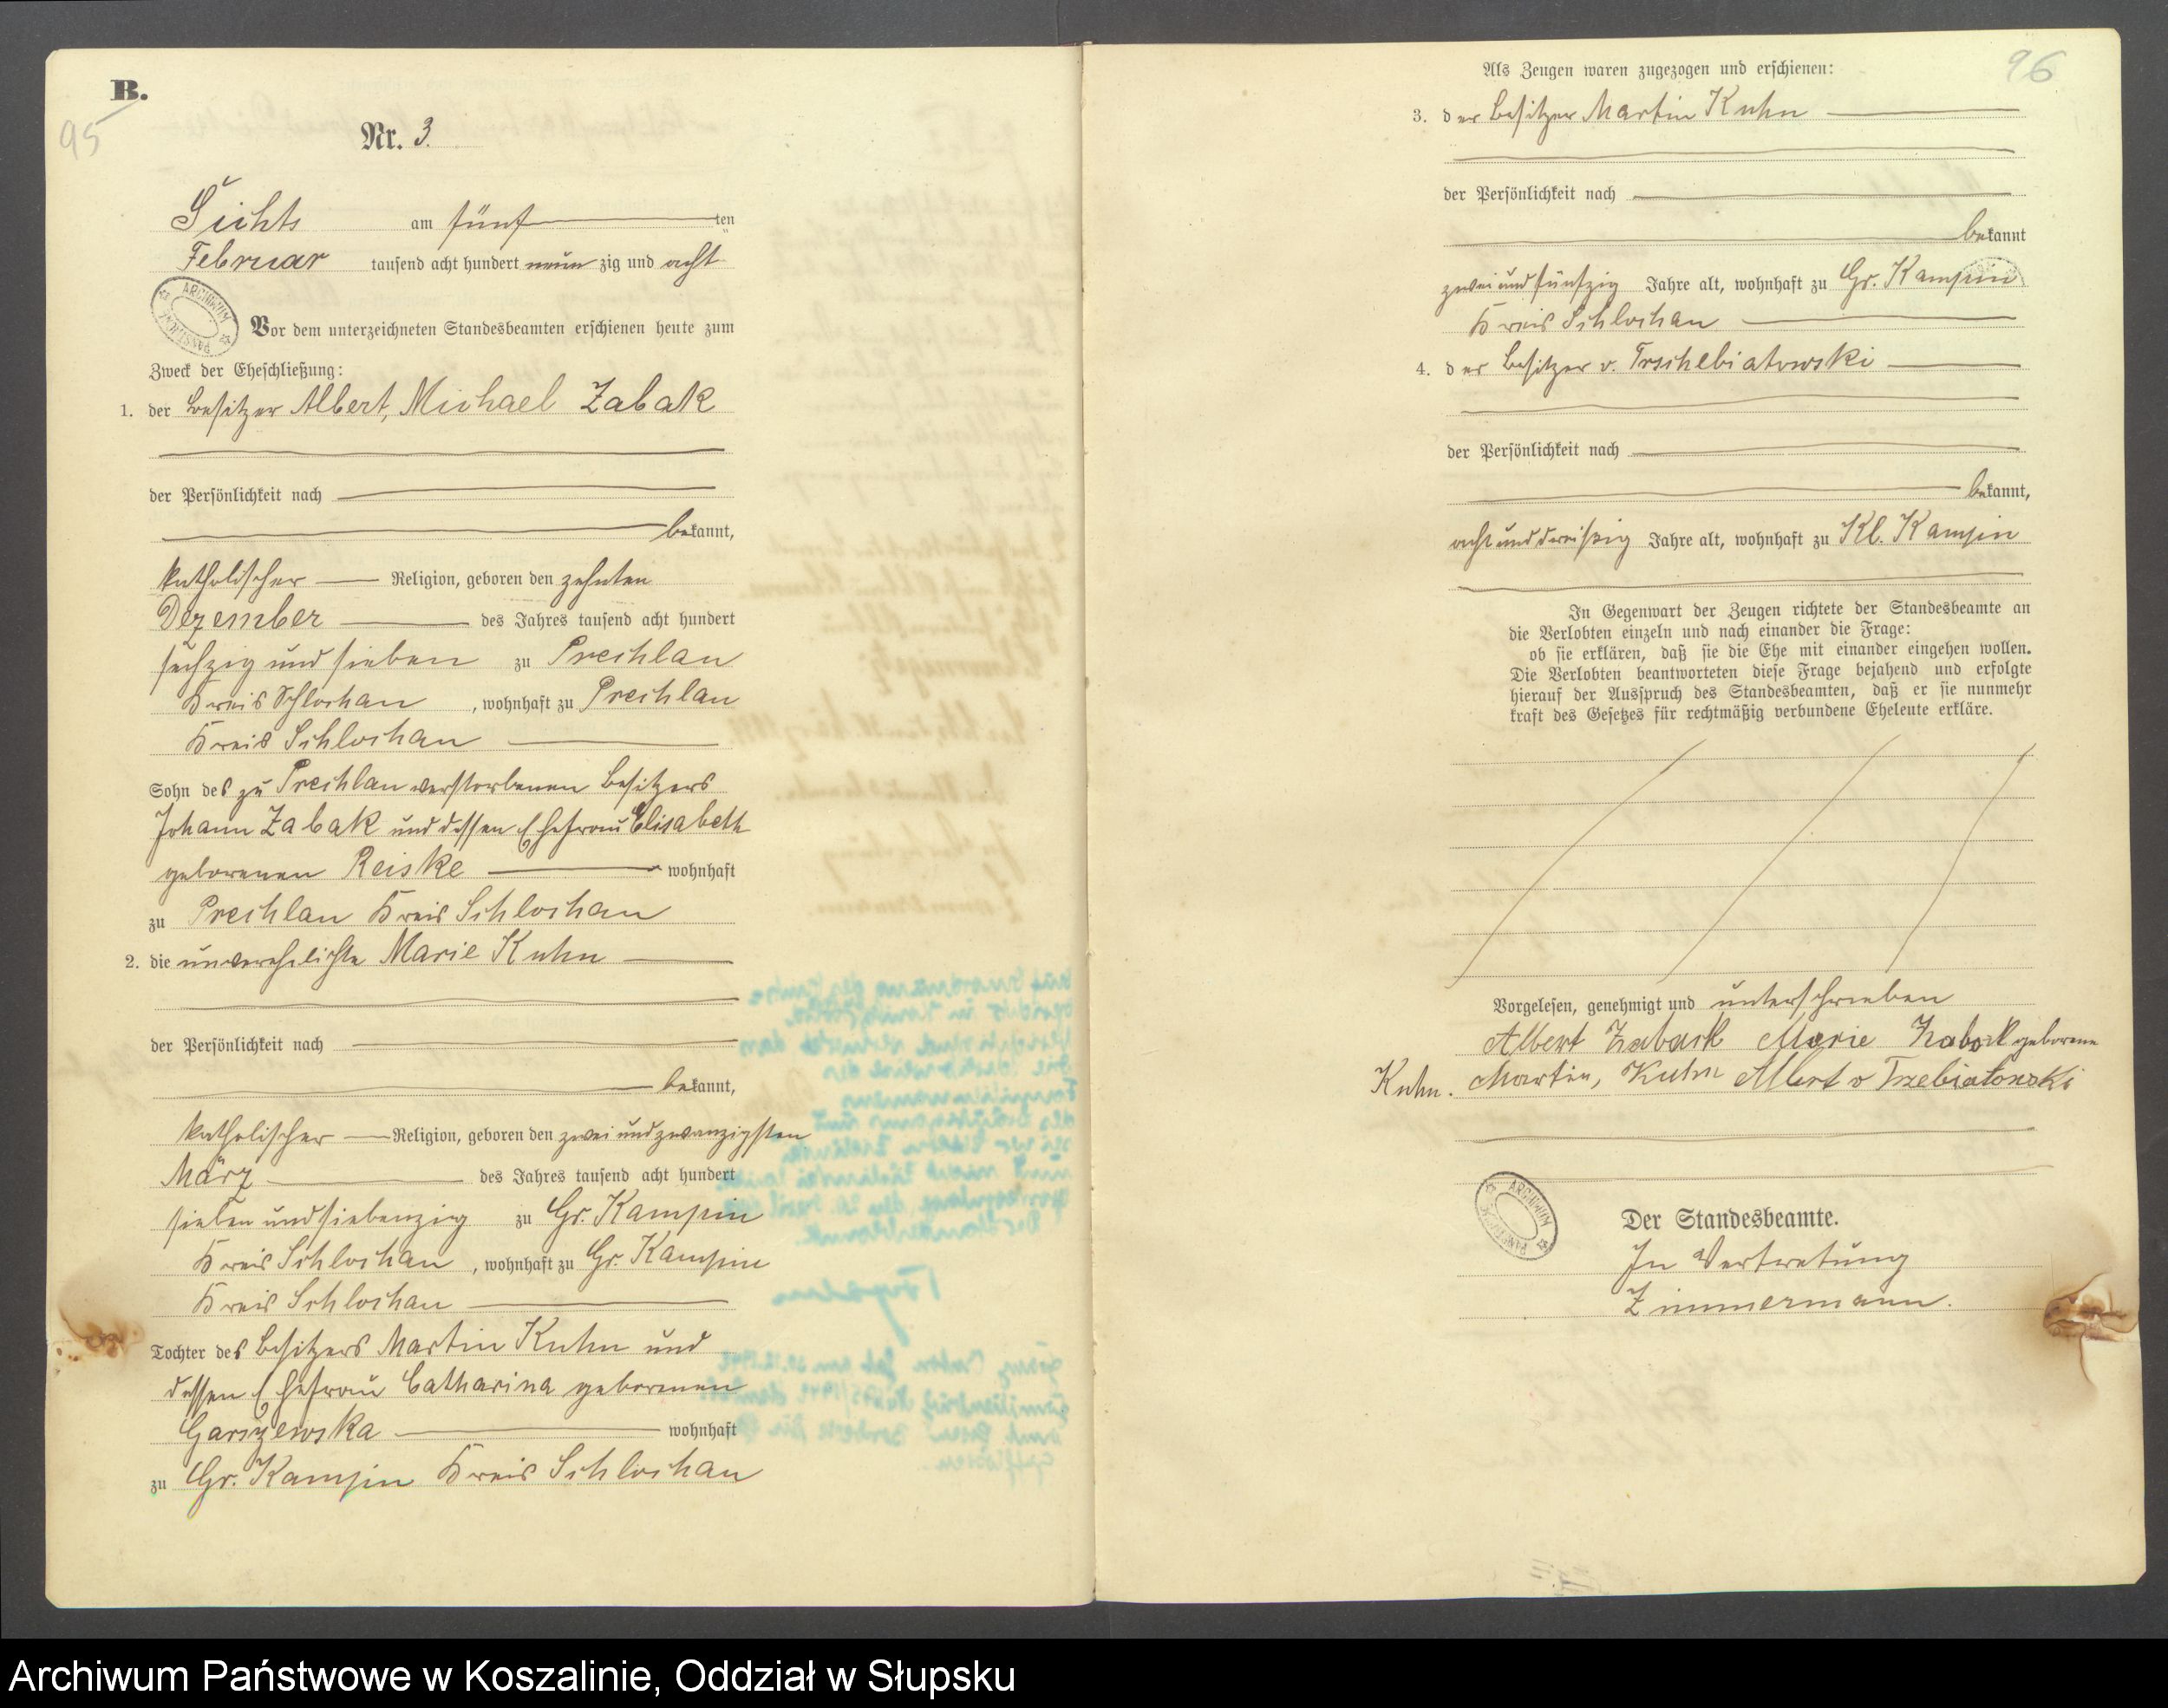 B.
95
Nr. 3.
Sichts am fünf ten
Februar tausend acht hundert neun zig und acht
ARCHIWUM PAŃSTWOWE
Vor dem unterzeichneten Standesbeamten erschienen heute zum
Zweck der Eheschließung:
1. der Besitzer Albert, Michael Zabak
der Persönlichkeit nach
bekannt,
katholischer Religion, geboren den zehnten
Dezember des Jahres tausend acht hundert
sechzig und sieben zu Prechlau
Kreis Schlochau, wohnhaft zu Prechlau
Kreis Schlochau
Sohn des zu Prechlau verstorbenen Besitzers
Johann Zabak und dessen Ehefrau Elisabeth
geborenen Reiske wohnhaft
zu Prechlau Kreis Schlochau
2. die unverehelichte Marie Kuhn
der Persönlichkeit nach
bekannt,
katholischer Religion, geboren den zwei und zwanzigsten
März des Jahres tausend acht hundert
sieben und siebenzig zu Gr. Kampin
Kreis Schlochau, wohnhaft zu Gr. Kampin
Kreis Schlochau
Tochter des Besitzers Martin Kuhn und
dessen Ehefrau Catharina geborenen
wohnhaft
zu Gr. Kampin Kreis Schlochau
96
Als Zeugen waren zugezogen und erschienen:
3. der Besitzer Martin Kuhn
der Persönlichkeit nach
bekannt
zwei und fünfzig Jahre alt, wohnhaft zu Gr. Kampin
Kreis Schlochau
4. der Besitzer v. Trschebiatowski
der Persönlichkeit nach
bekannt,
acht und dreißig Jahre alt, wohnhaft zu Kl. Kampin
In Gegenwart der Zeugen richtete der Standesbeamte an
die Verlobten einzeln und nach einander die Frage:
ob sie erklären, daß sie die Ehe mit einander eingehen wollen.
Die Verlobten beantworteten diese Frage bejahend und erfolgte
hierauf der Ausspruch des Standesbeamten, daß er sie nunmehr
kraft des Gesetzes für rechtmäßig verbundene Eheleute erkläre.
Vorgelesen, genehmigt und unterschrieben
Albert Zaback Marie Zaback geborene
Kuhn. Martin, Kuhn Albert v Trzebiatowski
ARCHIWUM PAŃSTWOWE
Der Standesbeamte.
In Vertretung
Zimmermann.
Archiwum Państwowe w Koszalinie, Oddział w Słupsku